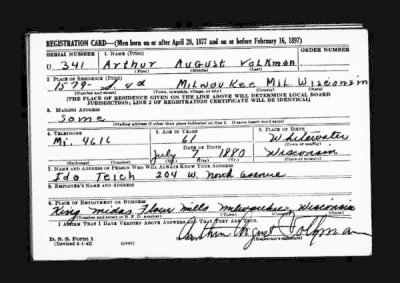 REGISTRATION CARD—(Men born on or after April 28, 1877 and on or before February 16, 1897)
SERIAL NUMBER 1. NAME (Print) ORDER NUMBER
U 341 Arthur August Volkman
(First) (Middle) (Last)
2. PLACE OF RESIDENCE (Print)
1579 Milwaukee Mil. Wisconsin
(Number and street) (Town, township, village, or city) (County) (State)
[THE PLACE OF RESIDENCE GIVEN ON THE LINE ABOVE WILL DETERMINE LOCAL BOARD
JURISDICTION; LINE 2 OF REGISTRATION CERTIFICATE WILL BE IDENTICAL]
3. MAILING ADDRESS
Same
(Mailing address if other than place indicated on line 2. If same insert word same)
4. TELEPHONE 5. AGE IN YEARS 6. PLACE OF BIRTH
Mi. 4616 61 Whitewater
DATE OF BIRTH (Town or county)
July 1880 Wisconsin
(Exchange) (Number) (Mo.) (Day) (Yr.) (State or country)
7. NAME AND ADDRESS OF PERSON WHO WILL ALWAYS KNOW YOUR ADDRESS
Ida Teich 204 W. North avenue
8. EMPLOYER'S NAME AND ADDRESS
9. PLACE OF EMPLOYMENT OR BUSINESS
King midas flour mills milwaukee, Wisconsin
(Number and street or R. F. D. number) (Town) (County) (State)
I AFFIRM THAT I HAVE VERIFIED ABOVE ANSWERS AND THAT THEY ARE TRUE.
D. S. S. Form 1
(Revised 4-1-42) (over) (Registrant's signature)
Arthur August Volkman